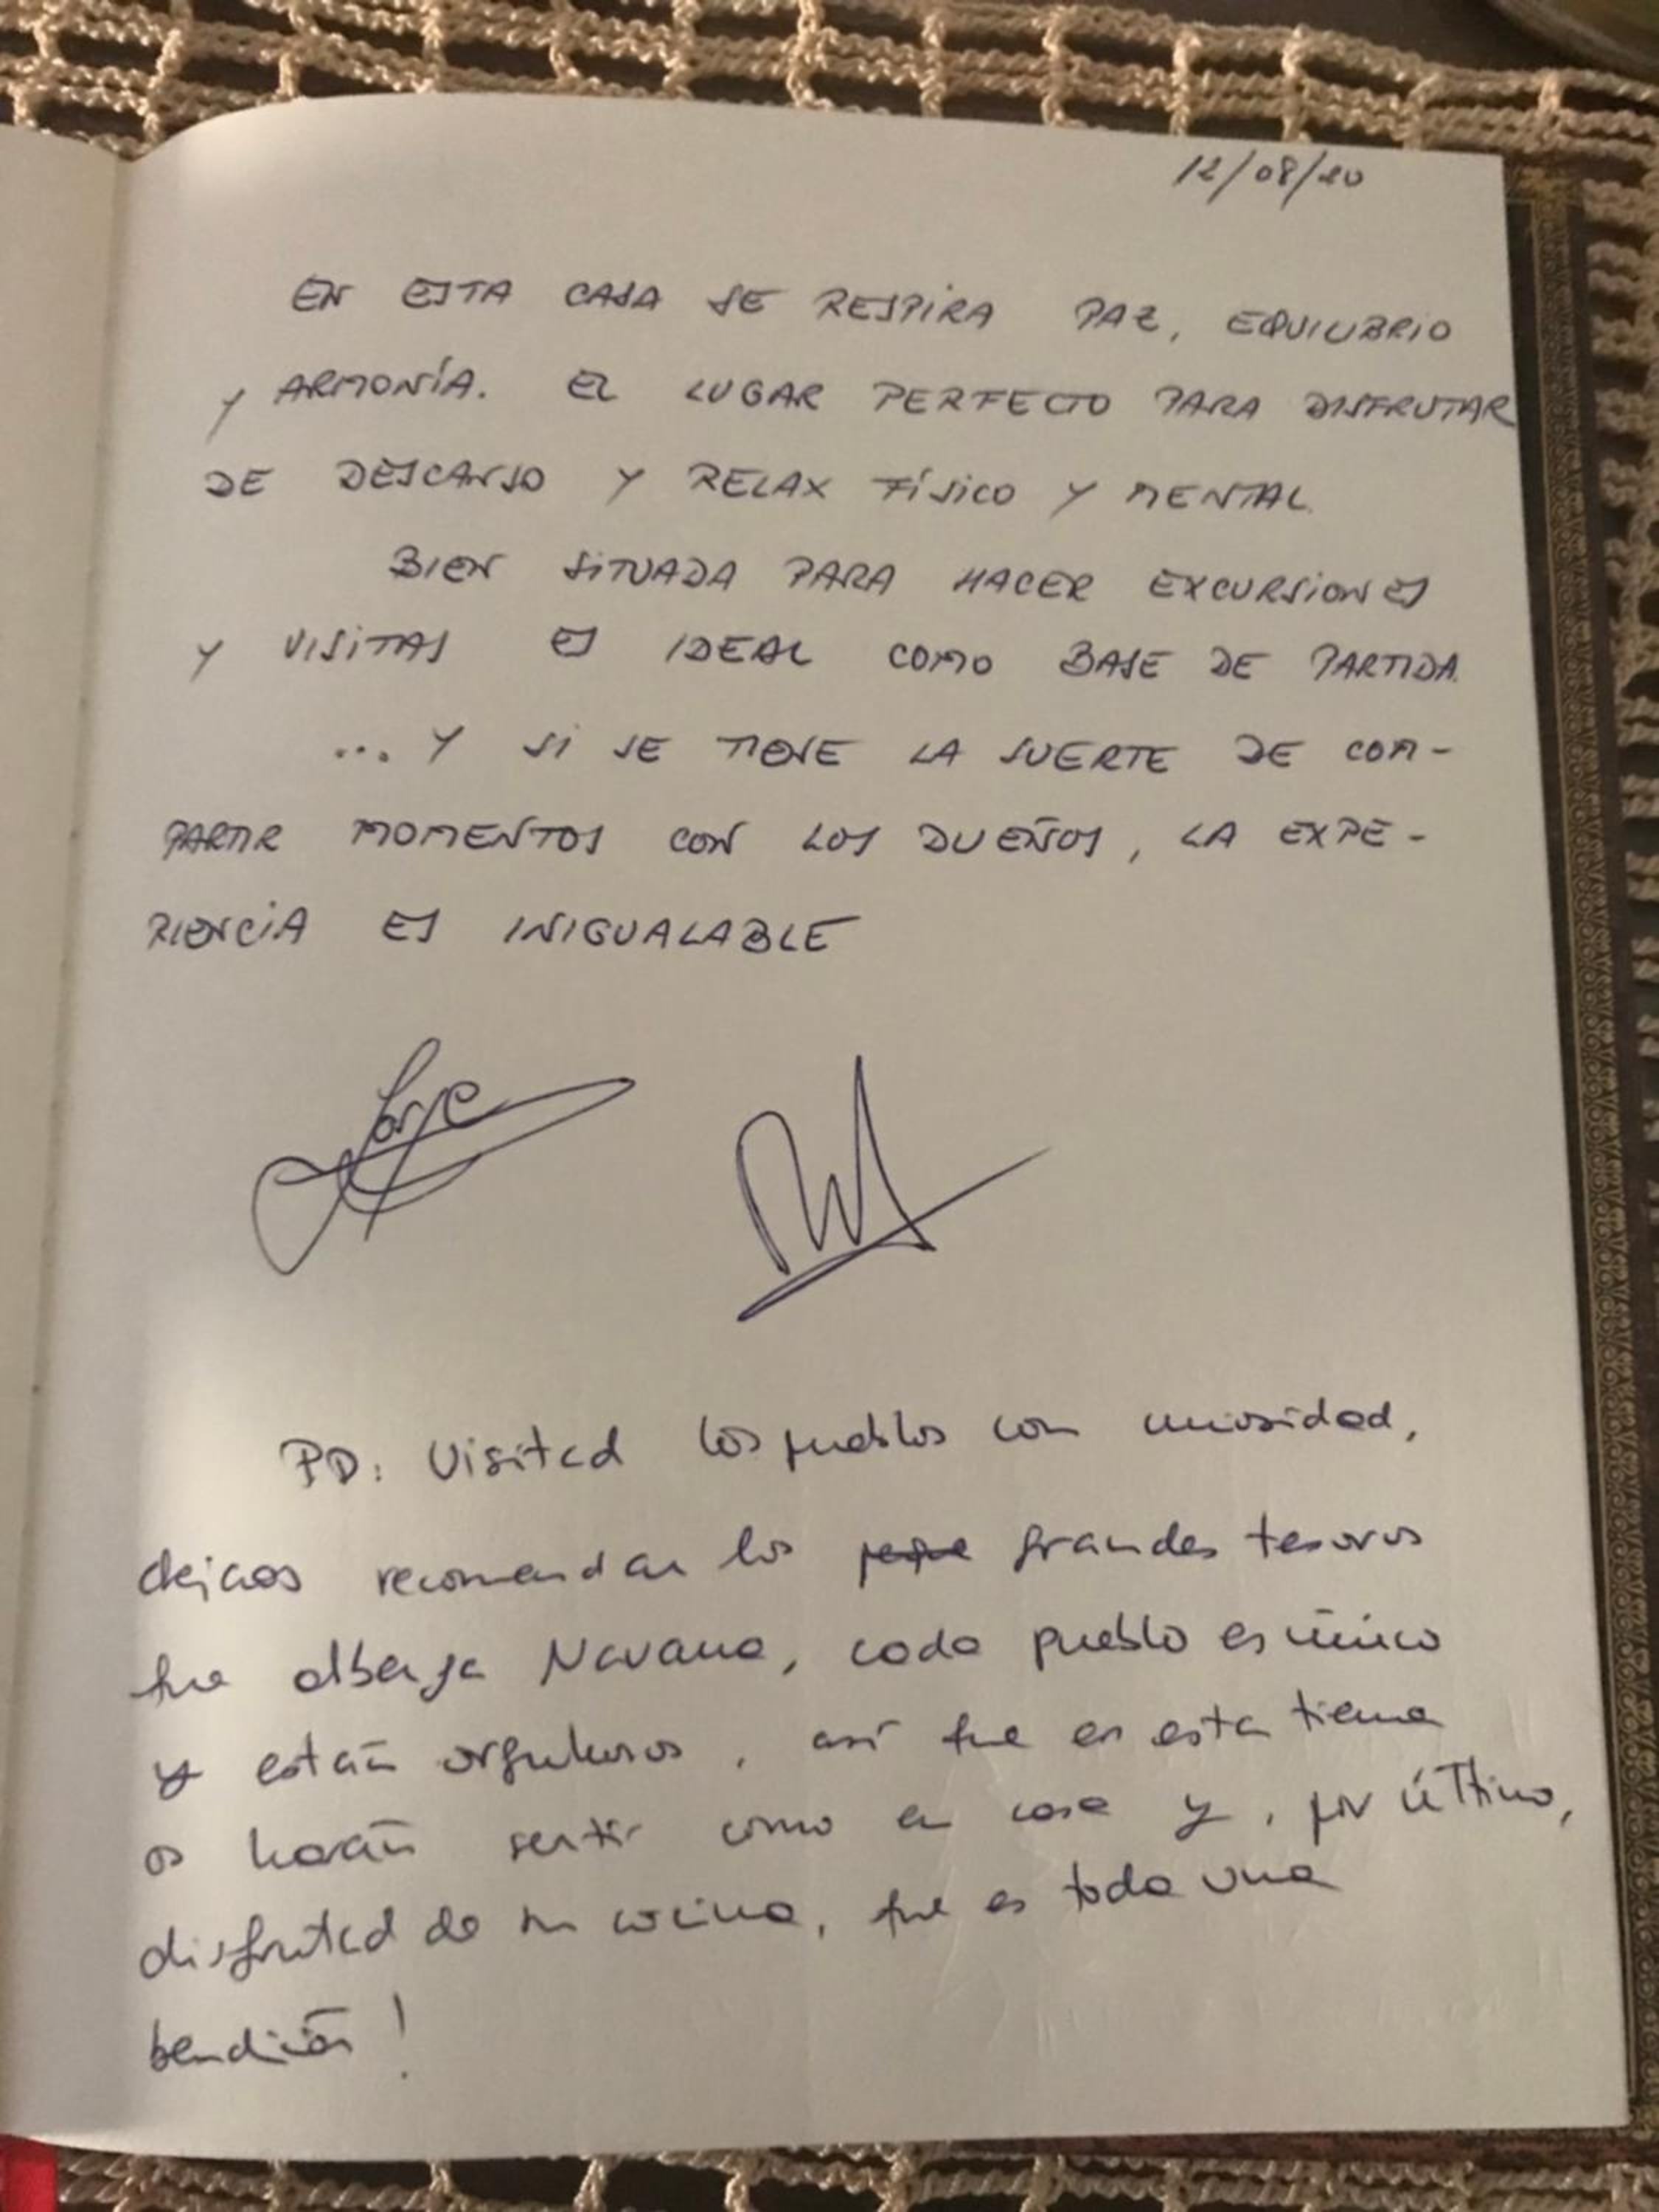 12/08/20
EN ESTA CASA SE RESPIRA PAZ, EQUILIBRIO
Y ARMONÍA. EL LUGAR PERFECTO PARA DISFRUTAR
DE DESCANSO Y RELAX FÍSICO Y MENTAL.
BIEN SITUADA PARA HACER EXCURSIONES
Y VISITAS ES IDEAL COMO BASE DE PARTIDA.
... Y SI SE TIENE LA SUERTE DE COM-
PARTIR MOMENTOS CON LOS DUEÑOS, LA EXPE-
RIENCIA ES INIGUALABLE
Jorge
PD: Visitad los pueblos con curiosidad,
dejaos recomendar los grandes tesoros
que alberga Navarra, cada pueblo es único
y están orgullosos, así que en esta tierra
os harán sentir como en casa y, por último,
disfrutad de su cocina, que es toda una
bendición!